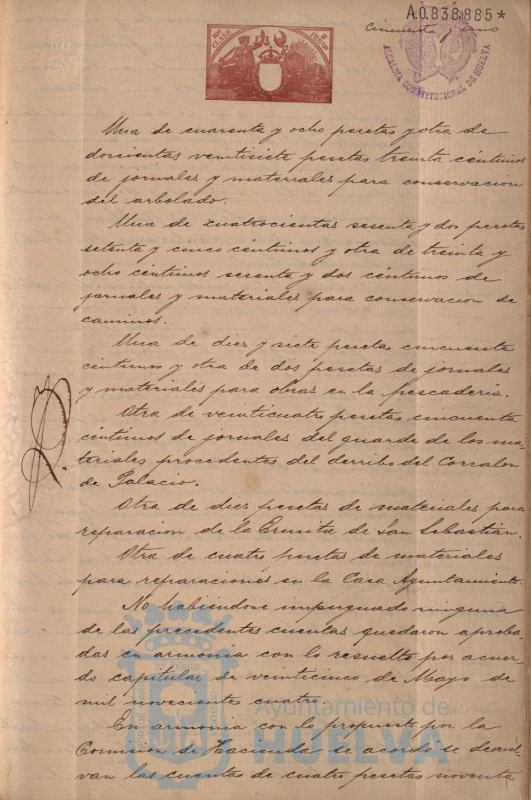 A.0.838.885*
Cincuenta y uno
10ª CLASE
2 PESETAS
ALCALDIA CONSTITUCIONAL DE HUELVA
Una de cuarenta y ocho pesetas y otra de
doscientas veintisiete pesetas treinta céntimos
de jornales y materiales para conservacion
del arbolado.
Una de cuatrocientas sesenta y dos pesetas
setenta y cinco céntimos y otra de treinta y
ocho céntimos sesenta y dos céntimos de
jornales y materiales para conservacion de
caminos.
Una de diez y siete peseta cincuenta
centimos y otra de dos pesetas de jornales
y materiales para obras en la pescadería.
Otra de veinticuatro pesetas cincuenta
céntimos de jornales del guarda de los ma-
teriales procedentes del derribo del Corralon
de Palacio.
Otra de diez pesetas de materiales para
reparacion de la Ermita de San Sebastian.
Otra de cuatro pesetas de materiales
para reparaciones en la Casa Ayuntamiento.
No habiendose impugnado ninguna
de las precedentes cuentas quedaron aproba
das en armonia con lo resuelto por acuer
do capitular de veinticinco de Mayo de
mil novecientos cuatro.
En armonia con lo propuesto por la
Comision de Hacienda se acordó se devuel
van las cuentas de cuatro pesetas noventa
Ayuntamiento de
HUELVA